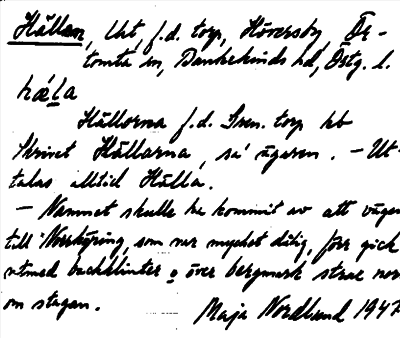 Hällan, Uht, f.d. torp, Höversby, Ör-
tomta sn, Bankekinds hd, Östg. l.
hæ̀la
Hällorna f.d. Sven. torp kb
Skrivet Hällarna, sa' ägaren. – Ut-
talas alltid Hälla.
– Namnet skulle ha kommit av att vägen
till Norrköping, som var mycket dålig, förr gick
utmed backklinter o över bergmark strax norr
om stugan.
Maja Nordlund 1947